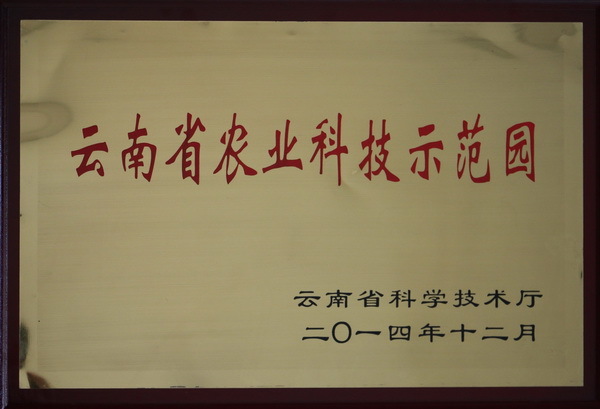 云南省农业科技示范园
云南省科学技术厅
二〇一四年十二月